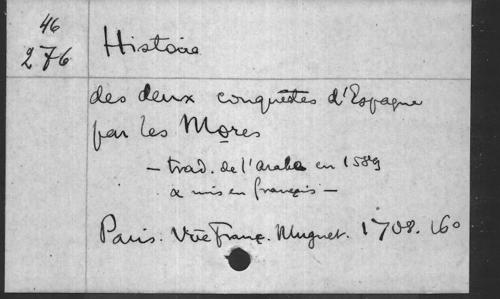 46
276
Histoire
des deux conquêtes d'Espagne
par les Mores
— trad. de l'arabe en 1589
& mis en français —
Paris. Vve Franç. Muguet. 1708. 16º